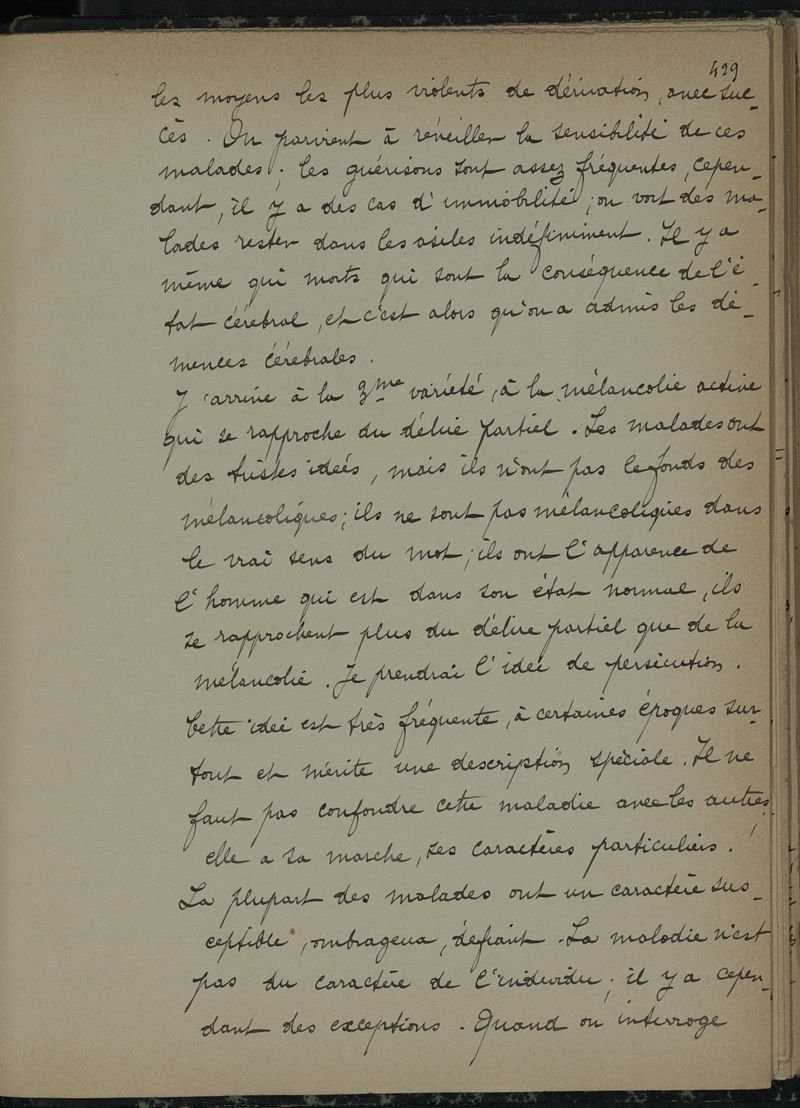 429
les moyens les plus violents de dérivation, avec suc-
cès. On parvient à réveiller la sensibilité de ces
malades; les guérisons sont assez fréquentes, cepen-
dant, il y a des cas d'immobilité; on voit des ma-
lades rester dans les asiles indéfiniment. Il y a
même qui morts qui sont la conséquence de l'é-
tat cérébral, et c'est alors qu'on a admis les dé-
mences cérébrales.
J'arrive à la 3me variété, à la mélancolie active
qui se rapproche du délire partiel. Les malades ont
des tristes idées, mais ils n'ont pas le fonds des
mélancoliques; ils ne sont pas mélancoliques dans
le vrai sens du mot; ils ont l'apparence de
l'homme qui est dans son état normal, ils
se rapprochent plus du délire partiel que de la
mélancolie. Je prendrai l'idée de persécution.
Cette idée est très fréquente, à certaines époques sur-
tout et mérite une description spéciale. Il ne
faut pas confondre cette maladie avec les autres,
elle a sa marche, ses caractères particuliers.
La plupart des malades ont un caractère sus-
ceptible, ombrageux, défiant. La maladie n'est
pas du caractère de l'individu; il y a cepen-
dant des exceptions. Quand on interroge